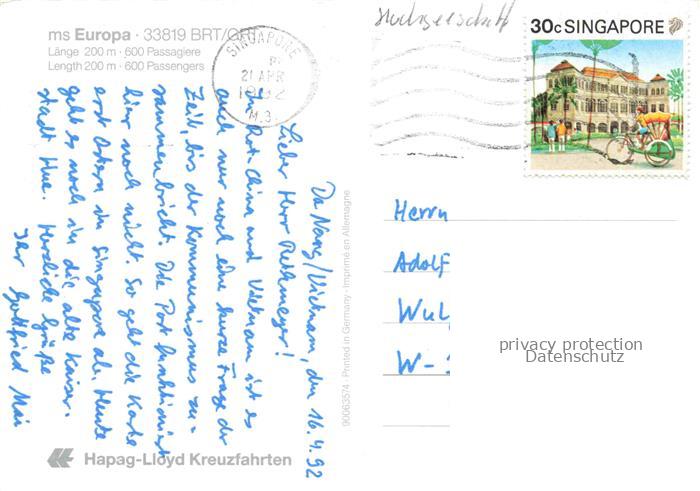 ms Europa · 33819 BRT/GRT
Länge 200 m · 600 Passagiere
Length 200 m · 600 Passengers
SINGAPORE
21 APR
1992
M.3
Hochseeschiff
30c SINGAPORE
Da Nang/Vietnam, den 16.4.92
Lieber Herr Rethemeyer!
In Rot China und Vietnam ist es
auch nur noch eine kurze Frage der
Zeit, bis der Kommunismus zu-
sammenbricht. Die Post funktioniert
hier noch nicht. So geht die Karte
erst Ostern in Singapore ab. Heute
geht es noch in die alte Kaiser-
stadt Hue. Herzliche Grüße
Ihr Gottfried Mai
90063574 · Printed in Germany · Imprimé en Allemagne
Herrn
Adolf
Wul
W-
privacy protection
Datenschutz
Hapag-Lloyd Kreuzfahrten